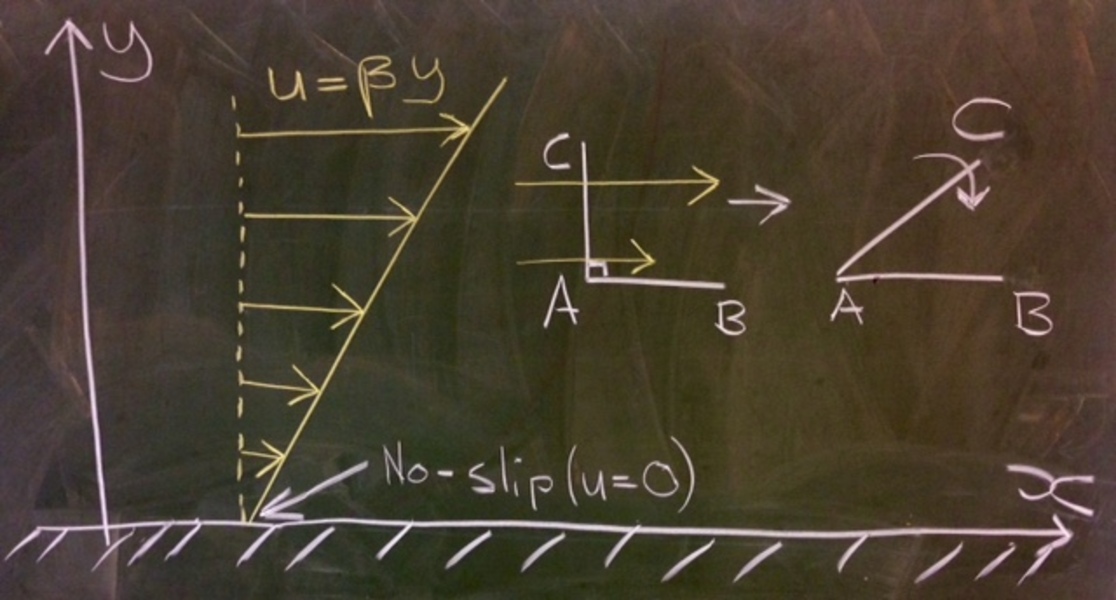 y
u = βy
C
A
B
C
A
B
No-slip (u=0)
x